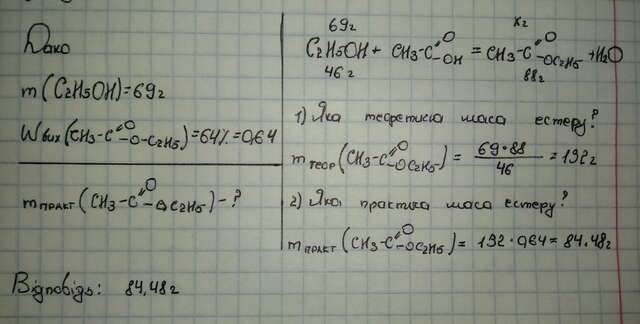 Дано
m(C2H5OH)=69г
Wвих(CH3-C=O-O-C2H5)=64%=0,64
mпракт(CH3-C=O-OC2H5)-?
Відповідь: 84,48г
69г xг
C2H5OH + CH3-C=O-OH = CH3-C=O-OC2H5 + H2O
46г 88г
1) Яка теоретична маса естеру?
mтеор(CH3-C=O-OC2H5) = 69·88/46 = 132г
2) Яка практика маса естеру?
mпракт(CH3-C=O-OC2H5) = 132·0,64 = 84.48г